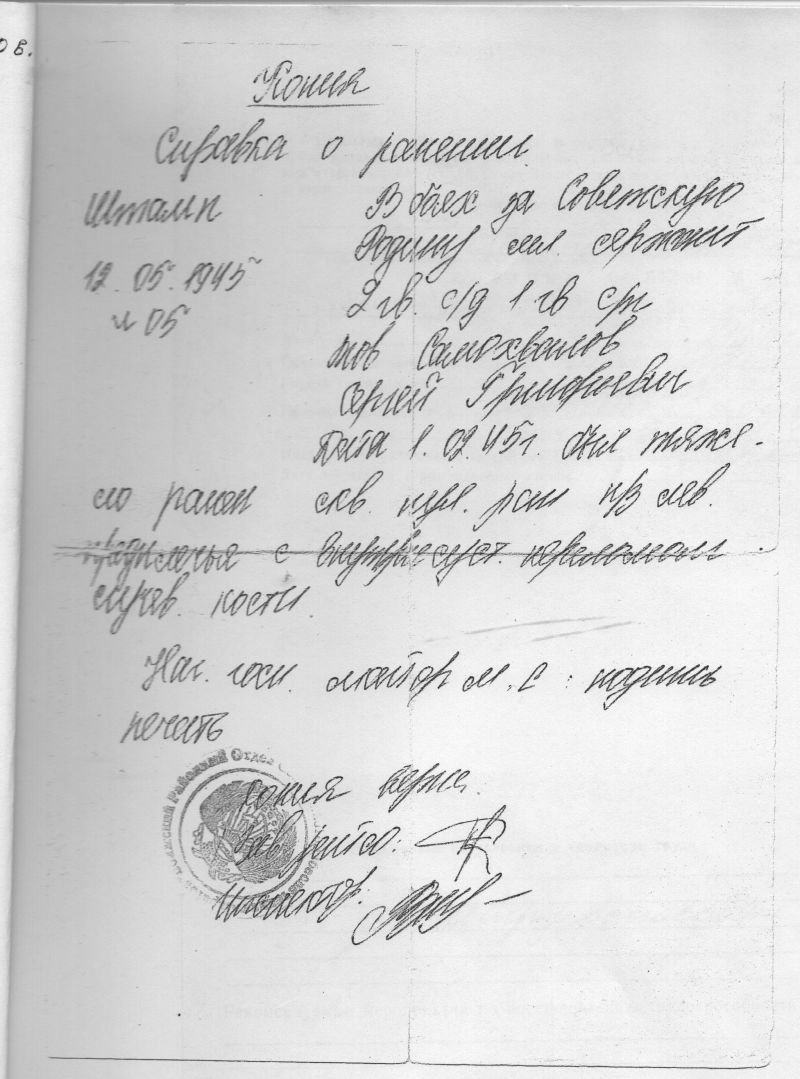 ов.
Копия
Справка о ранении.
Штамп
12.05.1945
№ 05
В боях за Советскую
Родину мл. сержант
2 гв. с/д 1 гв сп
тов Самохвалов
Сергей
Дата 1.02.45г. был тяже-
ло ранен скв. пул. ран н/3 лев.
предплечья с внутрисуст. переломом
лучев. кости.
Нач. госп. майор м.с: подпись
печать
Районный Отдел
Копия верна.
Зав райсо:
Инспектор: